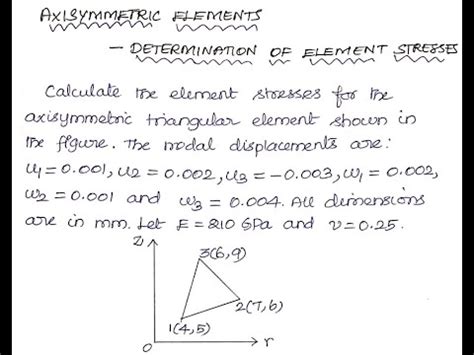 AXISYMMETRIC ELEMENTS
- DETERMINATION OF ELEMENT STRESSES
Calculate the element stresses for the
axisymmetric triangular element shown in
the figure. The nodal displacements are:
u₁ = 0.001, u₂ = 0.002, u₃ = -0.003, w₁ = 0.002,
w₂ = 0.001 and w₃ = 0.004. All dimensions
are in mm. Let E = 210 GPa and ν = 0.25.
Z
3(6,9)
2(7,6)
1(4,5)
0
r